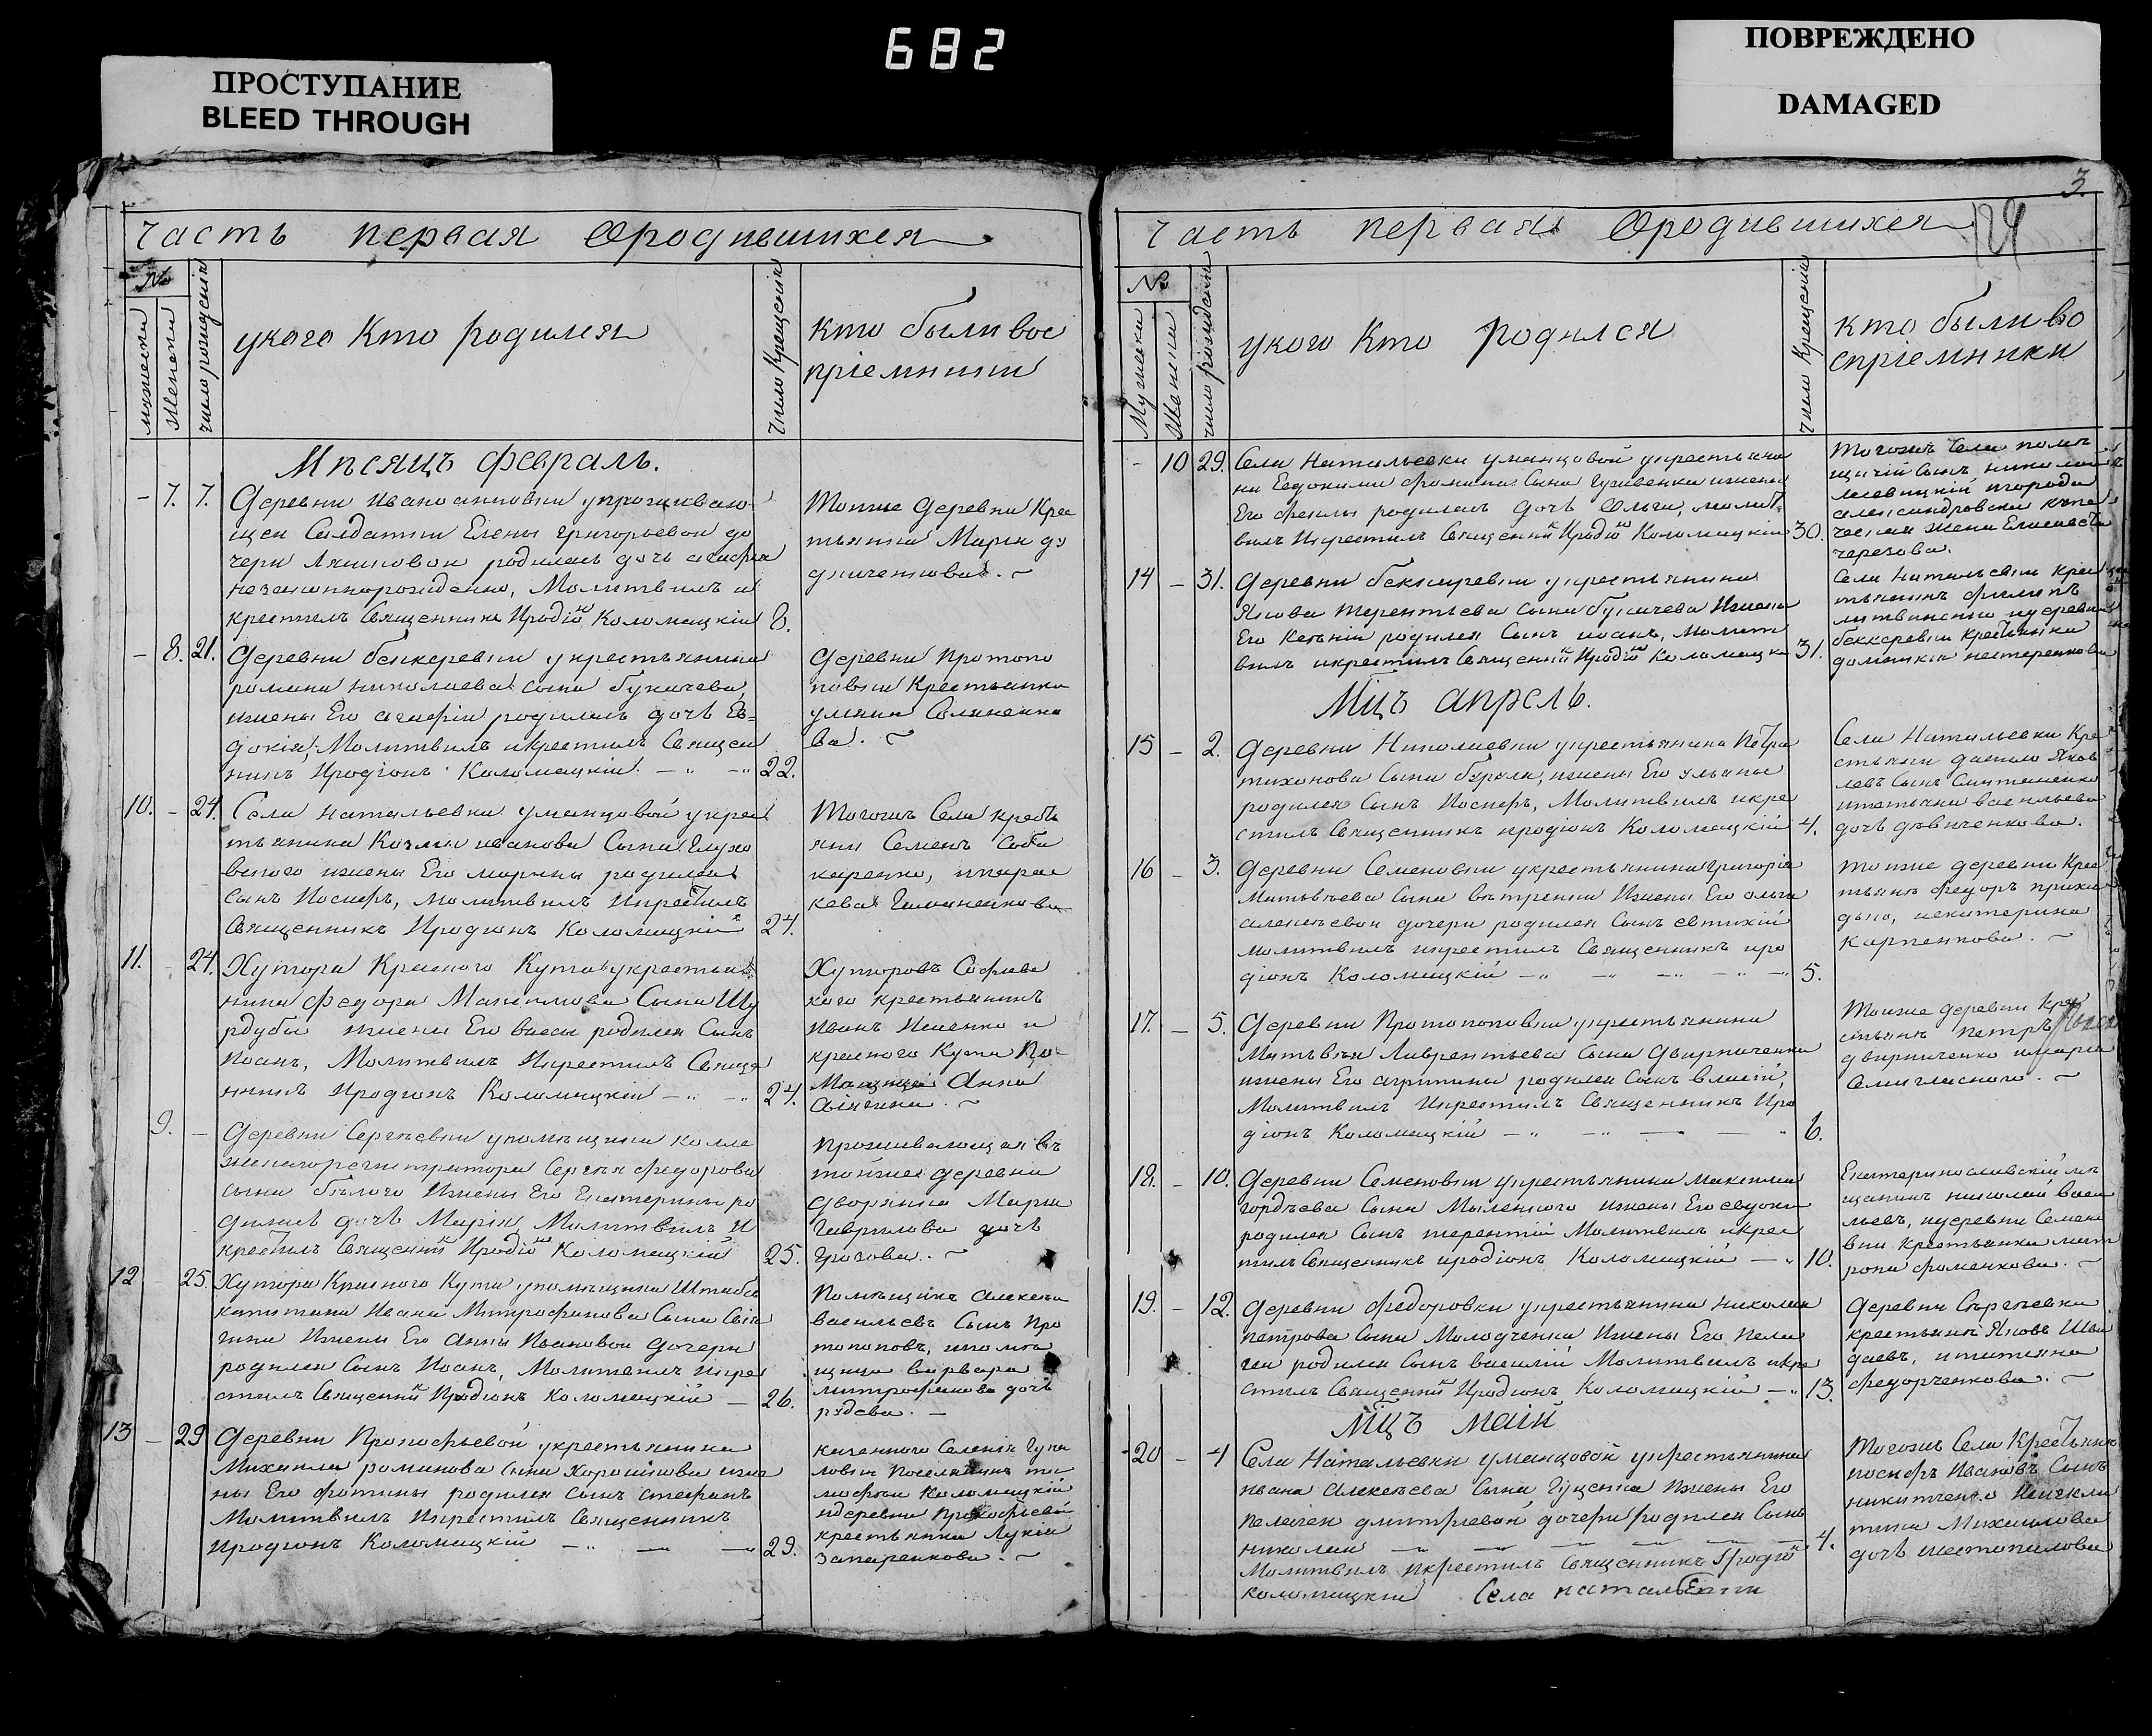 682
ПРОСТУПАНИЕ
BLEED THROUGH
ПОВРЕЖДЕНО
DAMAGED
Часть первая ородившихся
№
мужеска
женска
число рожденія
укого Кто родился
Число Крещенія
кто были вос
пріемники
Мѣсяцъ февраль.
- 7. 7. Деревни Иваноанновки упроживаю
щей Салдатки Елены Григорьевой до
чери родилась дочь
незаконнорожденно, Молитвилъ и
крестилъ Священникъ Иродіонъ Коломацкій 8.
Тойже деревни Крес
тьянка Марія
- 8. 21. Деревни беккеревки укрестьянина
романа николаева сына букачева,
ижены Его агафіи родилась дочь Ев=
докія, Молитвилъ икрестилъ Священ
никъ Иродіонъ Коломацкій. 22.
Деревни Протопо
повки Крестьянка
ва. ~
10. - 24. Села натальевки уманцовой укрес
тьянина Козмы иванова Сына Глухо
ижены Его марины родился
сынъ Иосифъ, молитвилъ Икрестилъ
Священникъ Иродіонъ Коломацкій 24.
Тогожъ Села кресть
яни Семенъ Соба
каренко, ипарас
кева
11. - 24. Хутора Красного Кута укрестья
нина федора Максимова Сына Шу
рдубы ижены Его васы родился Сынъ
Иоанъ, Молитвилъ Икрестилъ Свяще
нникъ Иродіонъ Коломацкій 24.
Хуторовъ Софіевс
кого крестьянинъ
Иванъ и
красного Кута По
мѣщица Анна
9. - Деревни Сергѣевки упомѣщика колле
жскагорегистратора Сергѣя федорова
сына бѣлого Ижены Его Екатерины ро
дилась дочь Марія, Молитвилъ И
крестилъ Священникъ Иродіонъ Коломацкій 25.
проживающая въ
тойже деревни
Дворянка Марія
Гаврилова дочь
12 - 25. Хутора Красного Кута упомѣщика Штабсъ
капитана Ивана Митрофанова Сына
Ижены Его Анны Ивановой дочери
родился Сынъ Иоанъ, Молитвилъ икре
стилъ Священникъ Иродіонъ Коломацкій 26.
Помѣщикъ алексѣй
васильевъ Сынъ Про
топоповъ, ипомѣ
щица варвара
митрофанова дочь
13 - 29 Деревни Прокофьевой укрестьянина
Михаила романова сына Хорошкова иже
ны Его фотины родился сынъ стефанъ
Молитвилъ Икрестилъ Священникъ
иродіонъ Коломацкій 29.
казенного Селенія Гупа
ловки Поселянинъ ти
мофей Коломацкій
идеревни Прокофьевой
крестьянка Лукія
Запаренкова. ~
3.
Часть первая ородившихся
№
Мужеска
Женска
число рожденія
укого Кто родился
Число Крещенія
кто были во
спріемники
- 10 29. Села Натальевки уманцовой укрестьяни
на Евдокима фомина Сына ижены
Его феклы родилась дочь Ольга, молит
вилъ Икрестилъ Священникъ Иродіонъ Коломацкій 30.
тогожъ Села помѣ
щичій Сынъ николай
города
александровска
жена Елисавета
14 - 31. Деревни беккеревки укрестьянина
Якова терентьева сына букачева Ижены
Его Ксеніи родился Сынъ иоанъ, Молит
вилъ икрестилъ Священникъ Иродіонъ Коломацкій 31.
Села натальевки крес
тьянинъ филипъ
литвиненко идеревни
беккеревки Крестьянка
домникія нестеренкова
Мцъ апрель.
15 - 2. Деревни Николаевки укрестьянина Петра
тихонова Сына бурлы, ижены Его ульяны
родился Сынъ Иосифъ, Молитвилъ икре
стилъ Священникъ иродіонъ Коломацкій 4.
Села Натальевки Кре
стьяни данило Яков
левъ Сынъ
итатьяна васильева
дочь дѣвиченкова.
16 - 3. Деревни Семеновки укрестьянина григорія
Матвѣева Сына вѣтренки Ижены Его ольги
алексѣевой дочери родился Сынъ евтихій
молитвилъ икрестилъ Священникъ иро
діонъ Коломацкій 5.
тойже деревни Крес
тьянъ федоръ прихо
дько, иекатерина
карпенкова. ~
17. - 5. Деревни Протопоповки укрестьянина
Матвѣя Лаврентьева Сына Двирниченка
ижены Его агрипины родился Сынъ власій,
Молитвилъ Икрестилъ Священникъ Иро
діонъ Коломацкій 6.
Тойже деревни Кре
стьянъ петръ
двирниченко имарія
18. - 10. Деревни Семеновки укрестьянина максима
гордѣева Сына Ижены Его евдокіи
родился Сынъ терентій Молитвилъ икрес
тилъ Священникъ иродіонъ Коломацкій 10.
Екатеринославскій мѣ
щанинъ николай васи
льевъ, идеревни Семено
вки крестьянка мат
рона фоменкова. ~
19. - 12. Деревни федоровки укрестьянина николая
петрова Сына Молодченка Ижены Его пела
геи родился Сынъ василій Молитвилъ икре
стилъ Священникъ Иродіонъ Коломацкій 13.
Деревни Сергѣевки
крестьянинъ Яковъ Шви
даевъ, итатяна
федорченкова. ~
Мцъ маій
20 - 4 Села Натальевки уманцовой укрестьянина
ивана алексѣева Сына Гуценка Ижены Его
пелагеи дмитріевой дочери родился Сынъ
николай 4.
Молитвилъ икрестилъ Священникъ Иродіонъ
коломацкій Села натальевки
Тогожъ Села Крестьянинъ
иосифъ Ивановъ Сынъ
никитченко
Михаилова
дочь шестопалова